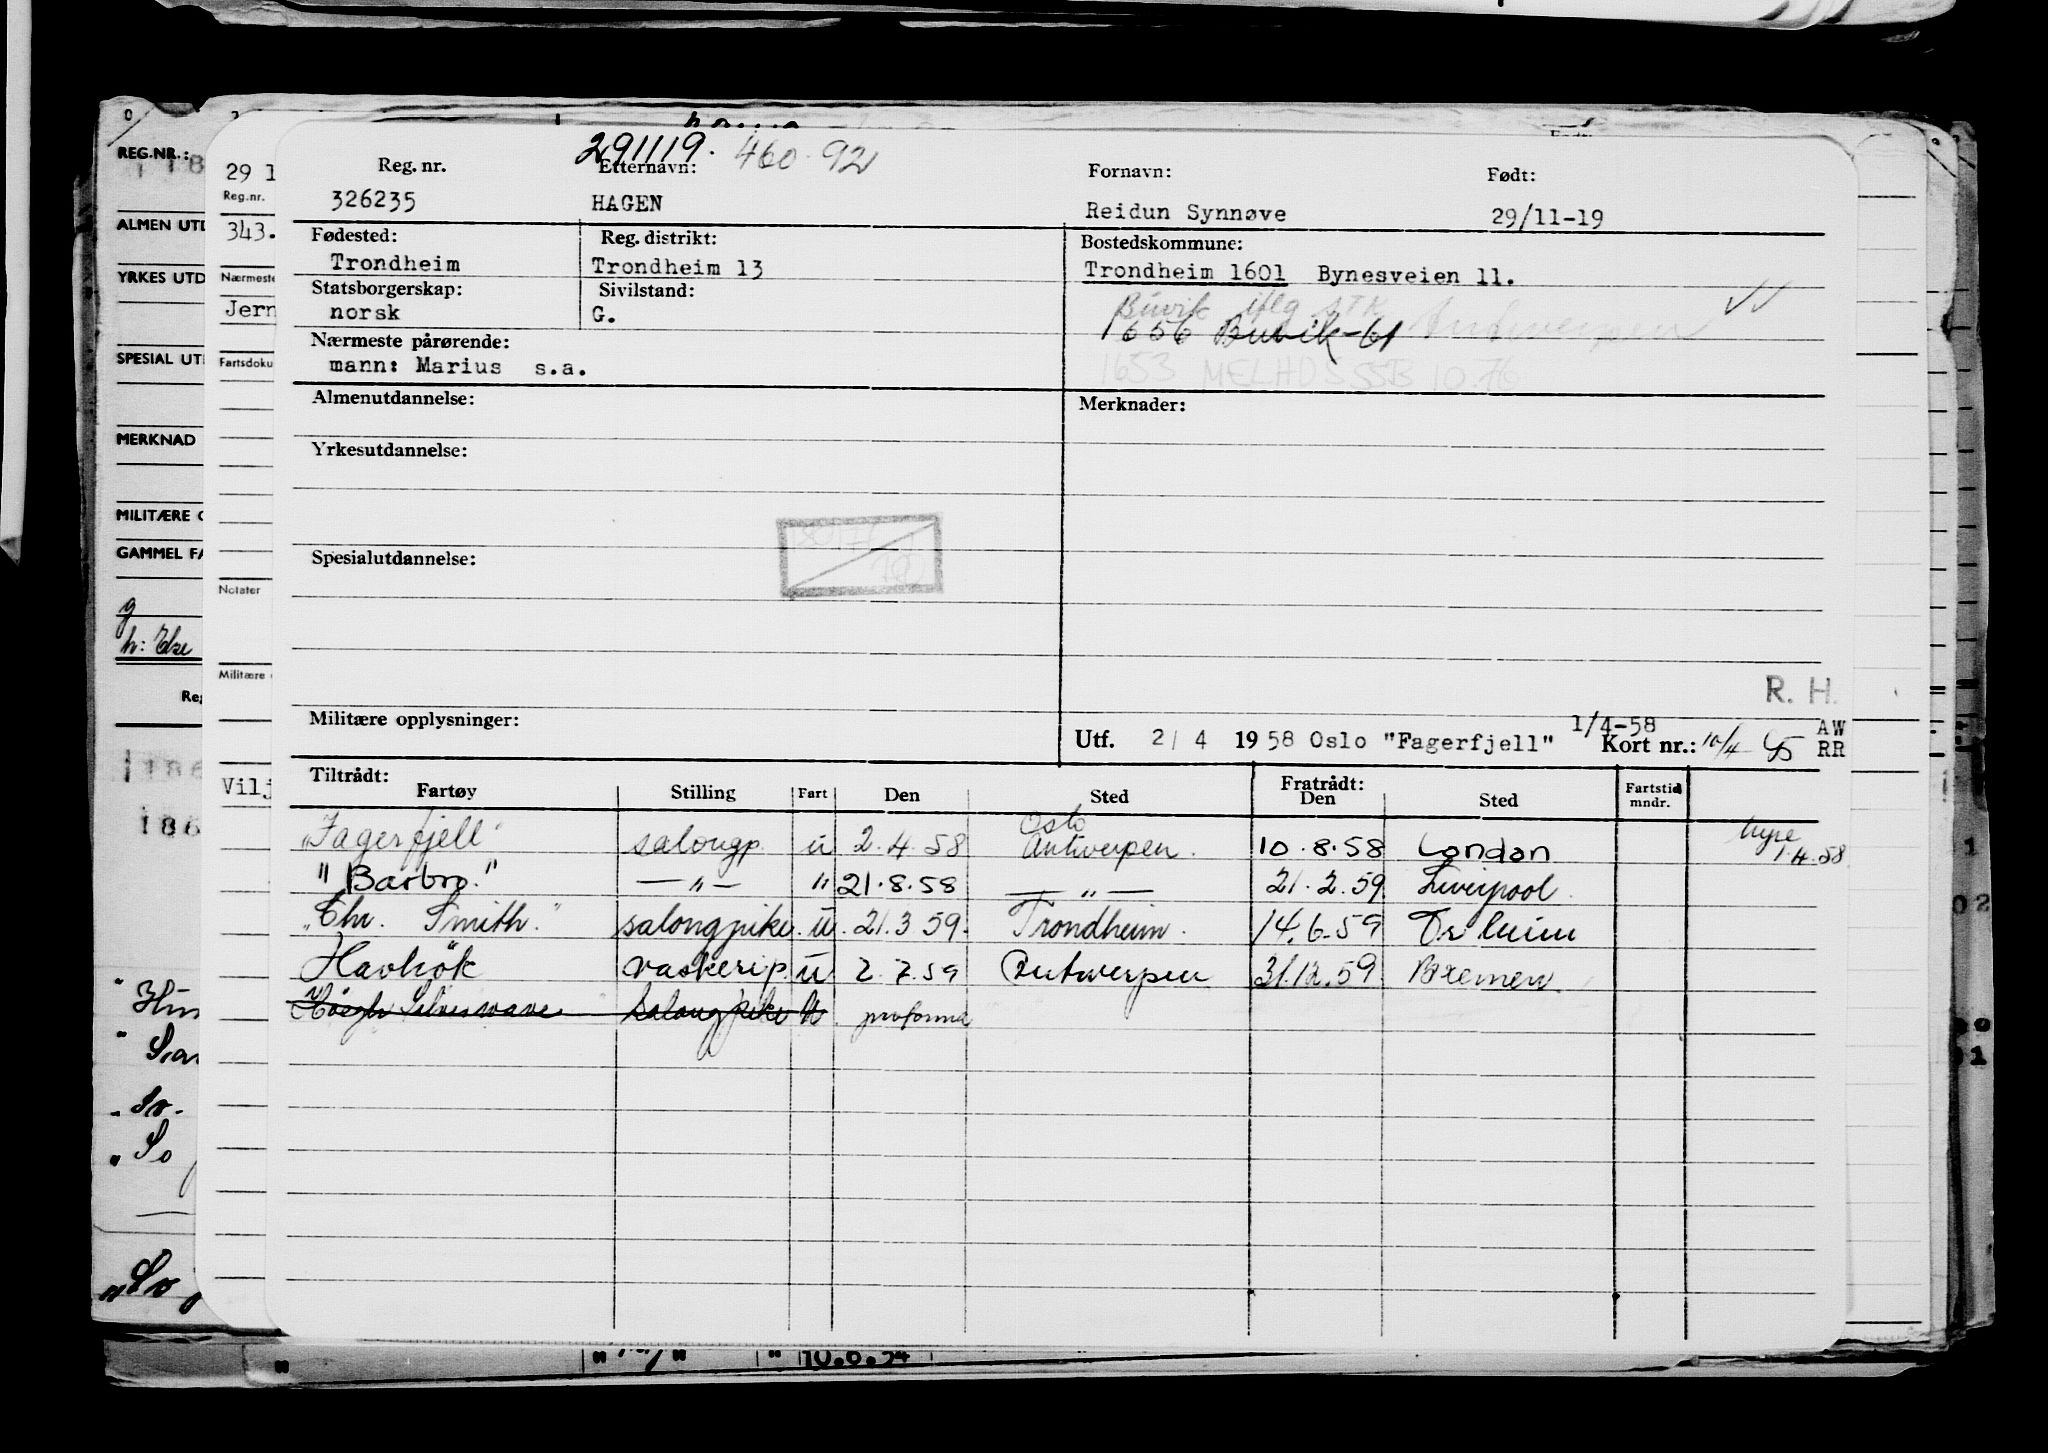 291119. 460.92
Reg. nr. Etternavn: Fornavn: Født:
326235 HAGEN Reidun Synnøve 29/11-19
Fødested: Reg. distrikt: Bostedskommune:
Trondheim Trondheim 13 Trondheim 1601 Bynesveien 11.
Statsborgerskap: Sivilstand:
norsk G.
Buvik iflg STK
1656 Buvik-61 Antwerpen
Nærmeste pårørende:
mann: Marius s.a.
1653 MELHUS SSB 10.76
Almenutdannelse: Merknader:
Yrkesutdannelse:
Spesialutdannelse:
R. H.
Militære opplysninger:
Utf. 2/4 1958 Oslo "Fagerfjell" 1/4-58 Kort nr.: 10/4 AW
RR
Tiltrådt: Fratrådt:
Fartøy Stilling Fart Den Sted Den Sted Fartstid mndr.
"Fagerfjell" salongp. u 2.4.58 Oslo Antwerpen. 10.8.58 London hyre 1.4.58
"Barbro." — " — " 21.8.58 — " — 21.2.59 Liverpool.
"Chr. Smith." salongpike. u. 21.3.59. Trondheim. 14.6.59 Tr heim
Havhök vaskerip. u 2.7.59 Antwerpen 31.12.59 Bremen.
Höegh Silverwave salongpike u proforma
REG.NR.:
ALMEN UTD
YRKES UTD
SPESIAL UT
MERKNAD
MILITÆRE O
GAMMEL FA
g
h: Else
Reg
186
29 1
Reg.nr.
343.
Nærmeste
Jern
Fartsdoku
Notater
Militære
Vilj
10.6.54